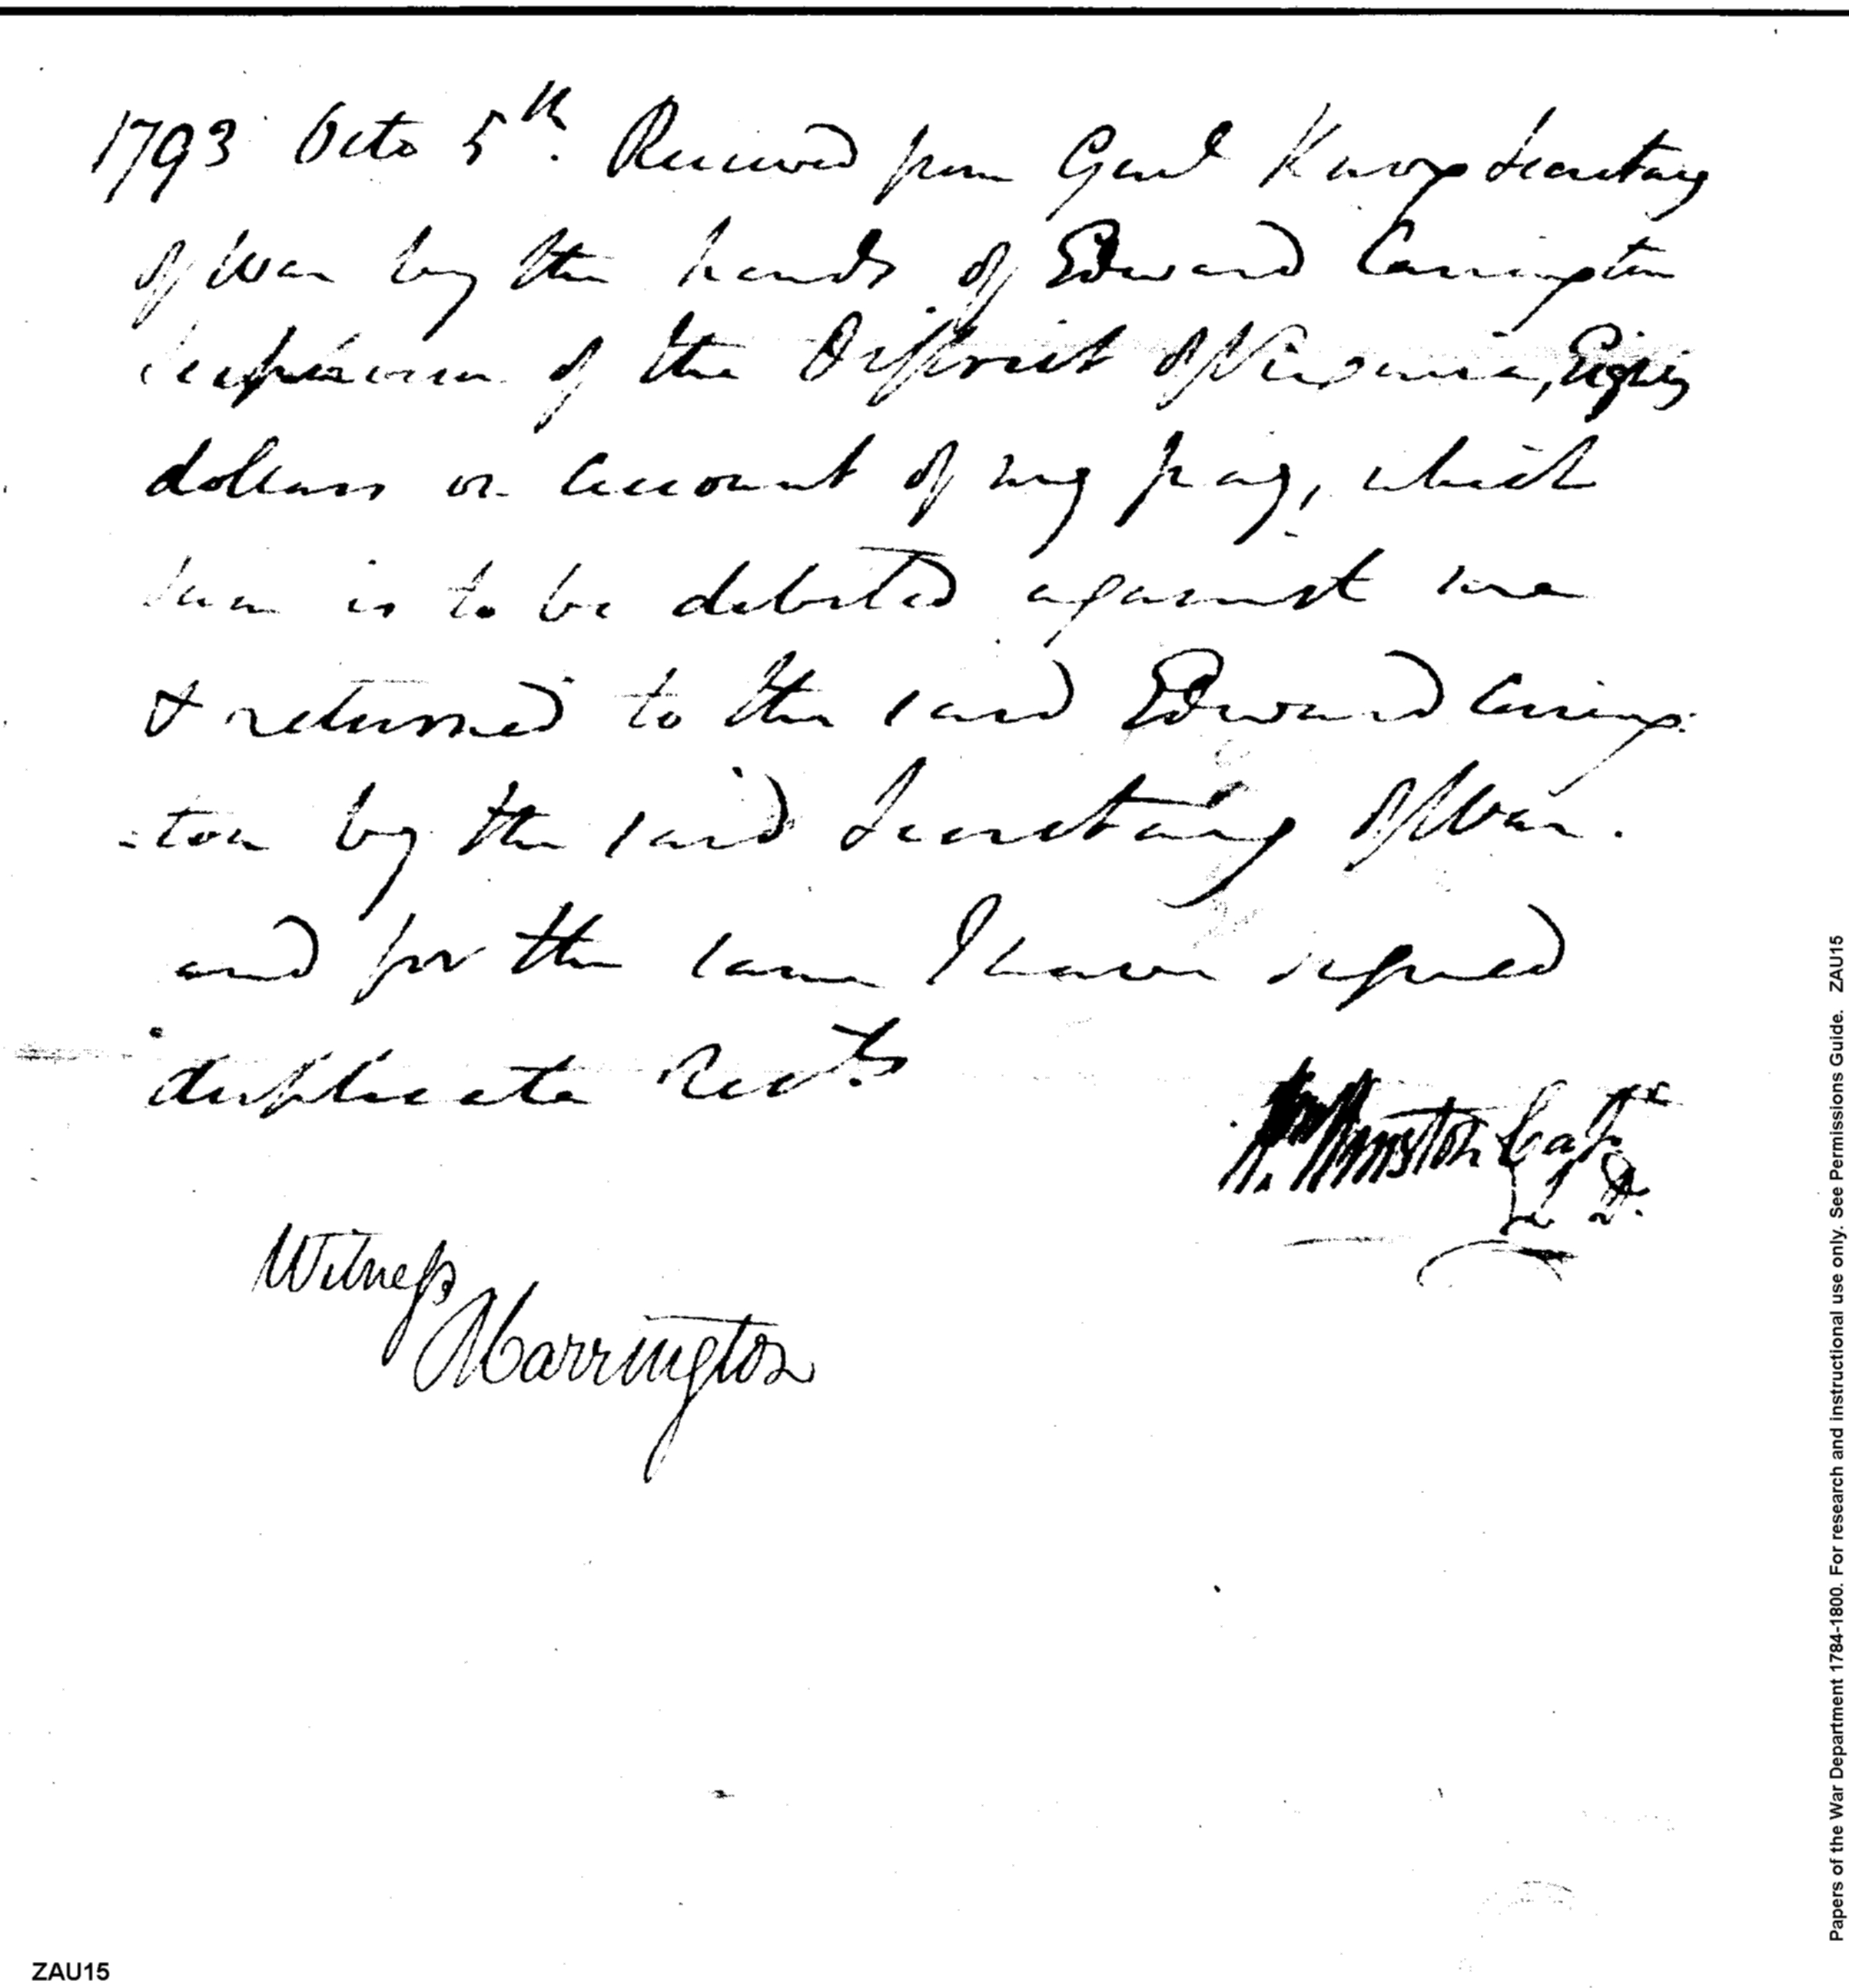 1793 Octo 5th. Received from Genl Knox Secretary
of War by the hands of Edward Carrington
Supervisor of the District of Virginia,
dollars on account of my pay, which
sum is to be debited against me
& returned to the said Edward Carring
-ton by the said Secretary of War.
and for the same I have signed
duplicate Rects.
Winston Capt
Witness
Carrington
Papers of the War Department 1784-1800. For research and instructional use only. See Permissions Guide. ZAU15
ZAU15